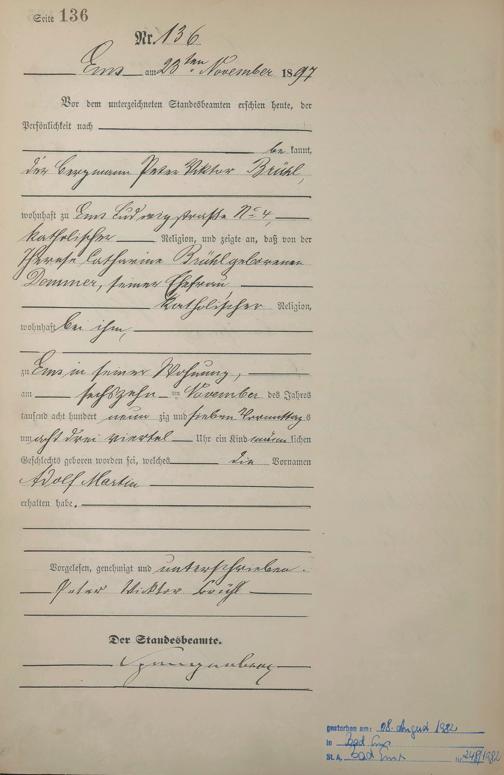 Seite 136
Nr. 136
Ems am 23ten November 1897
Vor dem unterzeichneten Standesbeamten erschien heute, der
Persönlichkeit nach
bekannt,
der Bergmann Peter Viktor Brühl,
wohnhaft zu Ems Ludwigstraße No 4,
katholischer Religion, und zeigte an, daß von der
Therese Catharine Brühl geborenen
Demmer, seiner Ehefrau,
katholischer Religion,
wohnhaft bei ihm,
zu Ems in seiner Wohnung,
am sechszehn ten November des Jahres
tausend acht hundert neunzig und sieben Vormittags
um acht drei viertel Uhr ein Kind männlichen
Geschlechts geboren worden sei, welches die Vornamen
Adolf Martin
erhalten habe.
Vorgelesen, genehmigt und unterschrieben.
Peter Wicktor Brühl
Der Standesbeamte.
Spangenberg
gestorben am: 08. August 1982
in Bad Ems
St. A. Bad Ems Nr. 248/1982